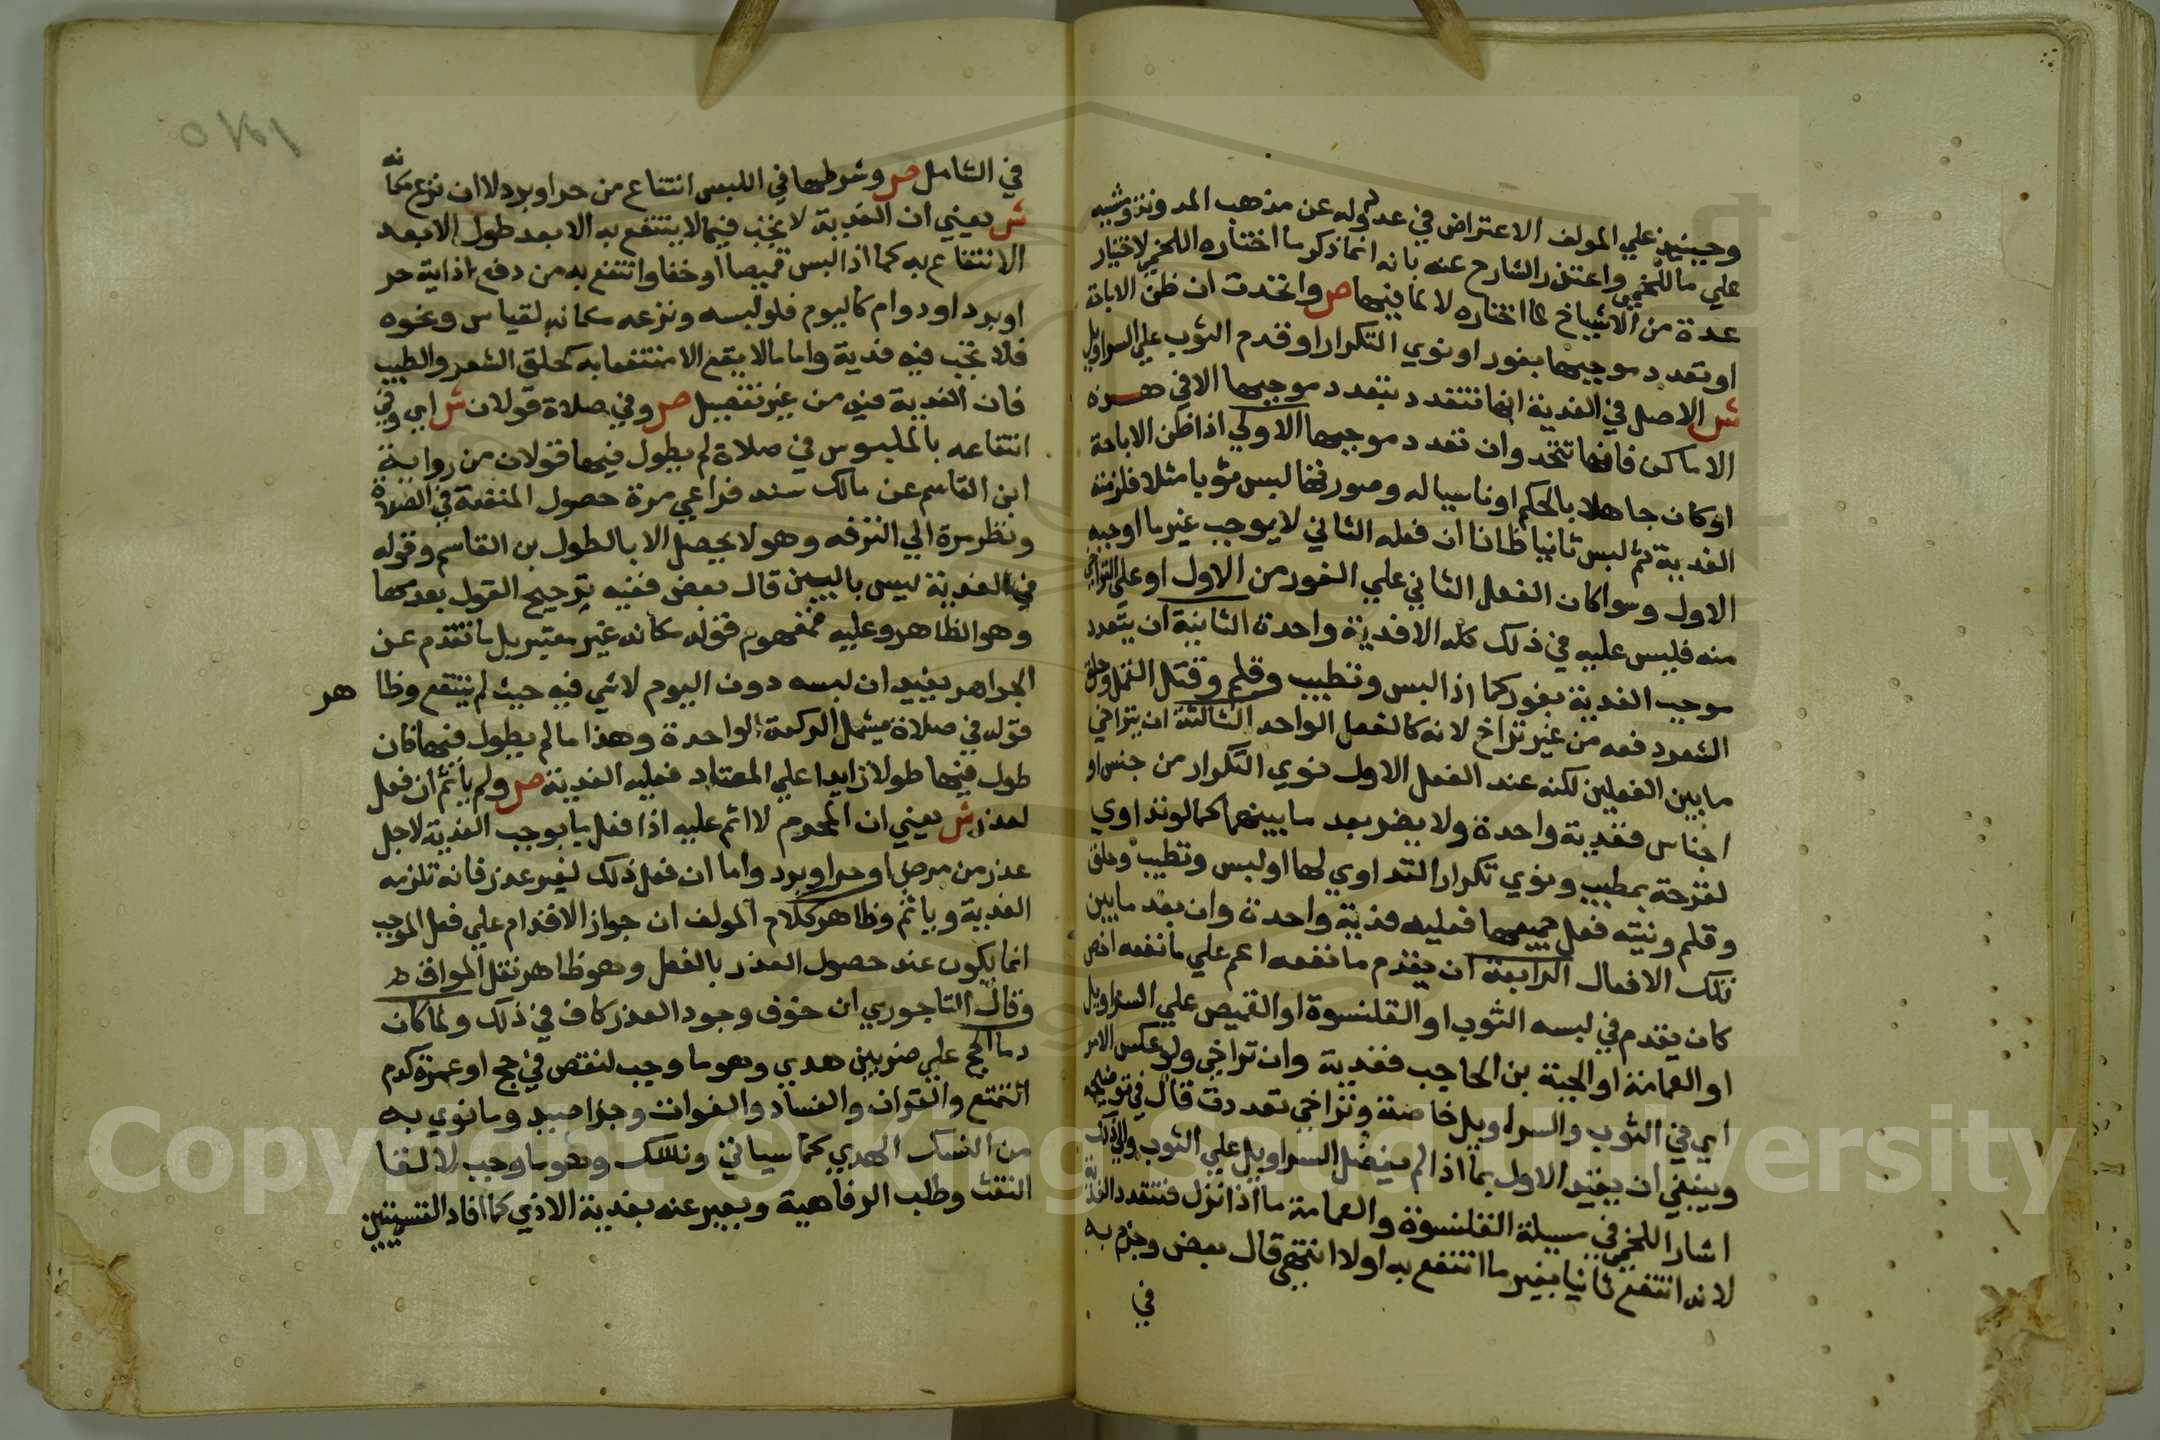 وحينيذ علي المولف الاعتراض في عدوله عن مذهب المدونة وشبيه
علي ما للخمي واعتذر الشارح عنه بانه انما ذكر ما اختاره اللخمي لاختيار
عدة من الاشياخ لما اختاره لا لما فيها ص واتحدت ان ظن الاباحة
او تعدد موجبها بفور او نوي التكرار او قدم الثوب علي السراويل
ش الاصل في الفدية انها تتعدد بتعدد موجبها الا في هذه
الاماكن فانها تتحد وان تعدد موجبها الاولي اذا ظن الاباحة
او كان جاهلا بالحكم او ناسيا له وصورتها لبس ثوبا مثلا فلزمته
الفدية ثم لبس ثانيا ظانا ان فعله الثاني لا يوجب غير ما اوجبه
الاول وسوا كان الفعل الثاني علي الفور من الاول او علي التراخي
منه فليس عليه في ذلك كله الا فدية واحدة الثانية ان يتعدد
موجب الفدية بفور كما اذا لبس وتطيب وقلم وقتل القمل وحلق
الشعر دفعه من غير تراخ لانه كالفعل الواحد الثالثة ان يتراخي
ما بين الفعلين لكنه عند الفعل الاول نوي التكرار من جنس او
اجناس ففدية واحدة ولا يضر بعد ما بينهما كما لو تداوي
لقرحة بمطيب ونوي تكرار التداوي لها او لبس وتطيب وحلق
وقلم ونيته فعل جميعها فعليه فدية واحدة وان بعد ما بين
تلك الافعال الرابعة ان يقدم ما نفعه اعم علي ما نفعه اخص
كان يقدم في لبسه الثوب او القلنسوة او القميص علي السراويل
او العمامة او الجبة بن الحاجب ففدية وان تراخي ولو عكس الامر
اي في الثوب والسراويل خاصة وتراخي تعددت قال في توضيحه
وينبغي ان يقيد الاول بما اذا لم يفضل السراويل علي الثوب والي ذلك
اشار اللخمي في مسيلة القلنسوة والعمامة ما اذا نزل فتتعدد الفدية
لانه انتفع ثانيا بغير ما انتفع به اولا انتهي قال بعض وجزم به
في
في الشامل ص وشرطها في اللبس انتفاع من حر او برد لا ان نزع مكانه
ش يعني ان الفدية لا تجب فيما لا ينتفع به الا بعد طول الا بعد
الانتفاع به كما اذا لبس قميصا او خفا وانتفع به من دفع اذاية حر
او برد او دوام كاليوم فلو لبسه ونزعه مكانه لقياس ونحوه
فلا تجب فيه فدية واما ما لا يقع الا منتفعا به كحلق الشعر والطيب
فان الفدية فيه من غير تفصيل ص وفي صلاة قولان ش اي وفي
انتفاعه بالملبوس في صلاة لم يطول فيها قولان من رواية
ابن القاسم عن مالك سند فراعي مرة حصول المنفعة في الصلاة
ونظر مرة الي الترفه وهو لا يحصل الا بالطول بن القاسم وقوله
في الفدية ليس بالبين قال بعض ففيه ترجيح القول بعدمها
وهو الظاهر وعليه فمفهوم قوله مكانه غير معتبر بل ما تقدم عن
الجواهر يفيد ان لبسه دون اليوم لا شي فيه حيث لم ينتفع وظا هر
قوله في صلاة يشمل الركعة الواحدة وهذا ما لم يطول فيها فان
طول فيها طولا زايدا علي المعتاد فعليه الفدية ص ولم ياثم ان فعل
لعذر ش يعني ان المحرم لا اثم عليه اذا فعل ما يوجب الفدية لاجل
عذر من مرض او حر او برد واما ان فعل ذلك لغير عذر فانه تلزمه
الفدية وياثم وظاهر كلام المولف ان جواز الاقدام علي فعل الموجب
انما يكون عند حصول العذر بالفعل وهو ظاهر نقل المواق
وقال التاجوري ان خوف وجود العذر كاف في ذلك ولما كان
دما الحج علي ضربين هدي وهو ما وجب لنقص في حج او عمرة كدم
التمتع والقران والفساد والفوات وجزا صيد وما نوي به
من النسك الهدي كما سياتي ونسك وهو ما وجب لالقا
التفث وطلب الرفاهية ويعبر عنه بفدية الاذي كما افاد القسمين